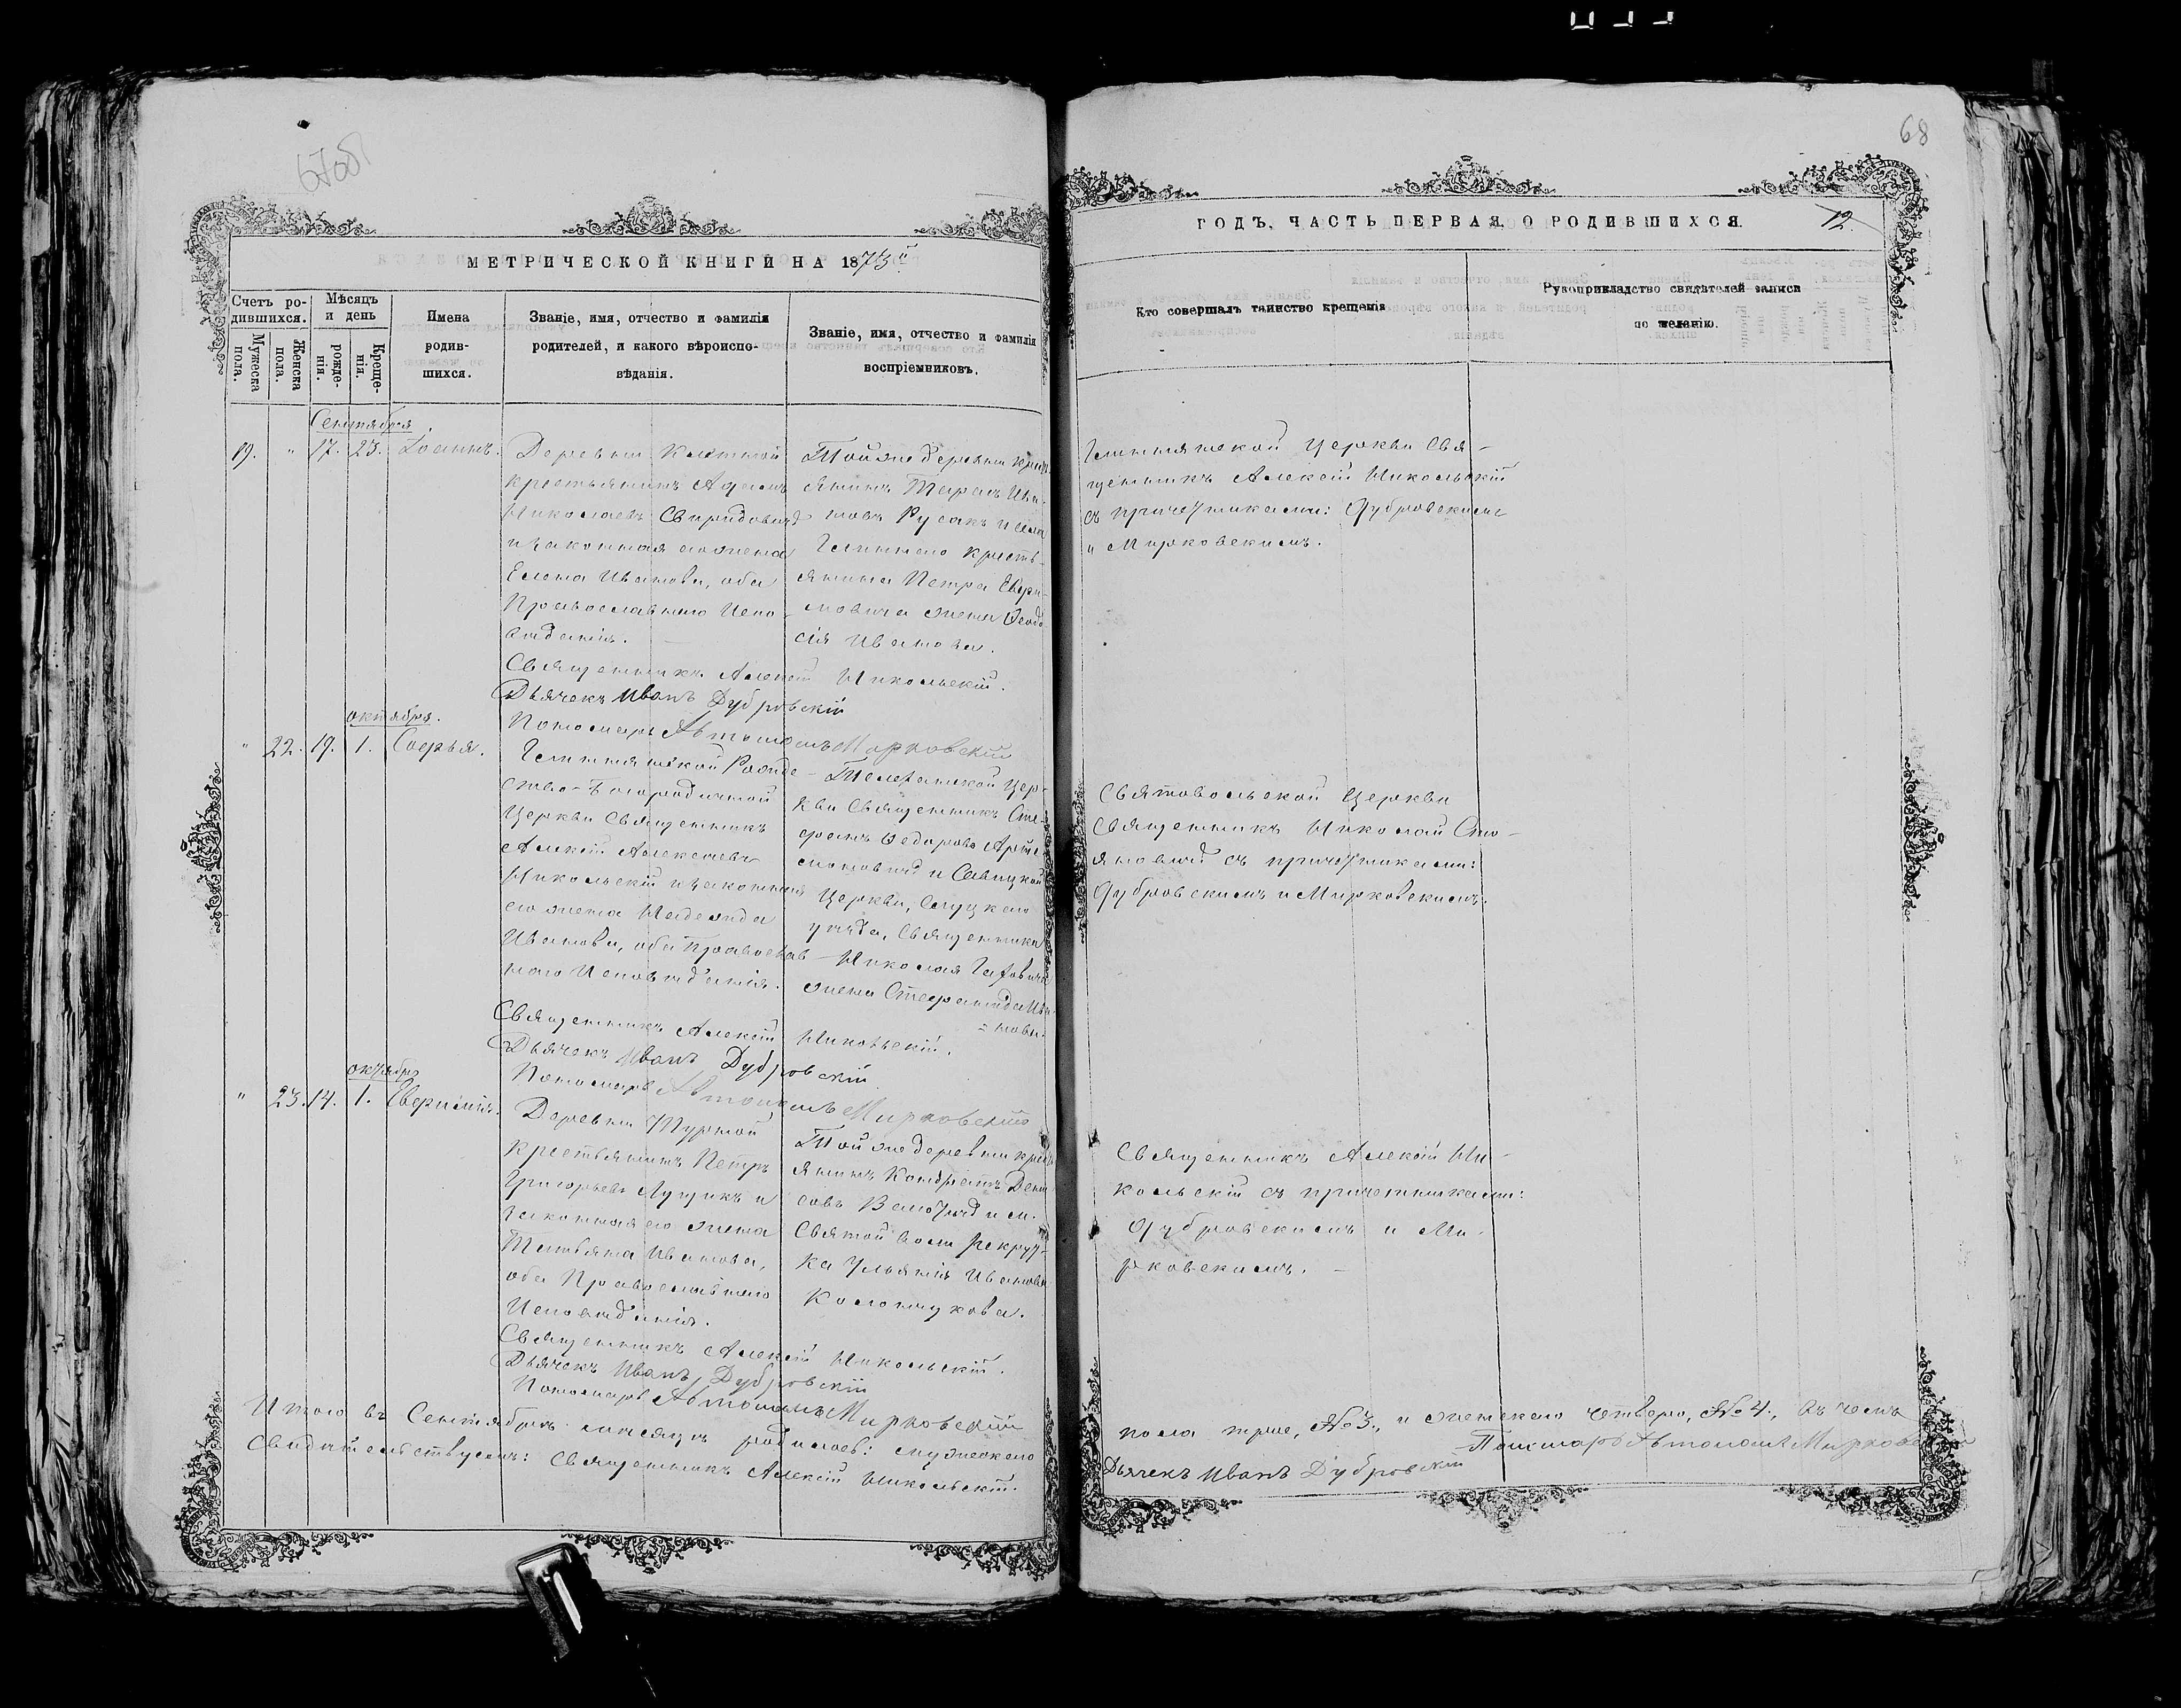 67об
МЕТРИЧЕСКОЙ КНИГИ НА 1873й
Счетъ ро-
дившихся.
Мужеска пола.
Женска пола.
Мѣсяцъ
и день
рожде-
нія.
Креще-
нія.
Имена
родив-
шихся.
Званіе, имя, отчество и фамилія
родителей, и какого вѣроиспо-
вѣданія.
Званіе, имя, отчество и фамилія
воспріемниковъ.
Сентября
19. " 17. 23. Іоаннъ.
Деревни Клетной
крестьянинъ Адамъ
Николаевъ Свиридовичъ
и законная его жена
Елена Иванова, оба
Православнаго Испо-
вѣданія.
Той же деревни крест
янинъ Тарасъ Ива-
новъ Русакъ и села
кресть-
янина Петра Ефри-
мовича жена Ѳеодо
сія Иванова.
Священникъ Алексій Никольскій.
Дьячекъ Иванъ Дубровскій
Пономарь Автономъ Мирковскій
октября.
" 22. 19. 1. Софья.
Рожде-
ство-Богородичной
Церкви Священникъ
Алексій Алексеевъ
Никольскій и законная
его жена Надежда
Иванова, оба Православ-
наго Исповѣданія.
Телеханской Цер-
кви Священникъ Сте-
фанъ Ѳедоровъ
и Савицкой
Церкви, Слуцкаго
уѣзда, Священника
Николая
жена Стефанида Ива
=нова.
Священникъ Алексій Никольскій.
Дьячекъ Иванъ Дубровскій
Пономарь Автономъ Мирковскій
октября
" 23. 14. 1.
Деревни Турной
крестьянинъ Петръ
Григорьевъ Луцикъ и
законная его жена
Татьяна Иванова,
оба Православнаго
Исповѣданія.
Той же деревни крест
янинъ Кондратъ Дени
совъ и м.
Святой Воли рекрут-
ка Ульянія Иванова
Коломцукова.
Священникъ Алексій Никольскій.
Дьячекъ Иванъ Дубровскій
Пономарь Автономъ Мирковскій
Итого въ Сентябрѣ мѣсяцѣ родилось: мужескаго
Свидѣтельствуемъ: Священникъ Алексій Никольскій.
68
ГОДЪ, ЧАСТЬ ПЕРВАЯ, О РОДИВШИХСЯ.
12.
Кто совершалъ таинство крещенія
Рукоприкладство свидѣтелей записи
по желанію.
Церкви Свя-
щенникъ Алексій Никольскій
съ причетниками: Дубровскимъ
и Мирковскимъ.
Святовольской Церкви
Священникъ Николай Сто-
яновичъ съ причетниками:
Дубровскимъ и Мирковскимъ.
Священникъ Алексій Ни-
кольскій съ причетниками:
Дубровскимъ и Ми-
рковскимъ. –
пола трое, №3., и женскаго четверо, №4., въ чемъ
Пономарь Автономъ Мирковскій
Дьячекъ Иванъ Дубровскій